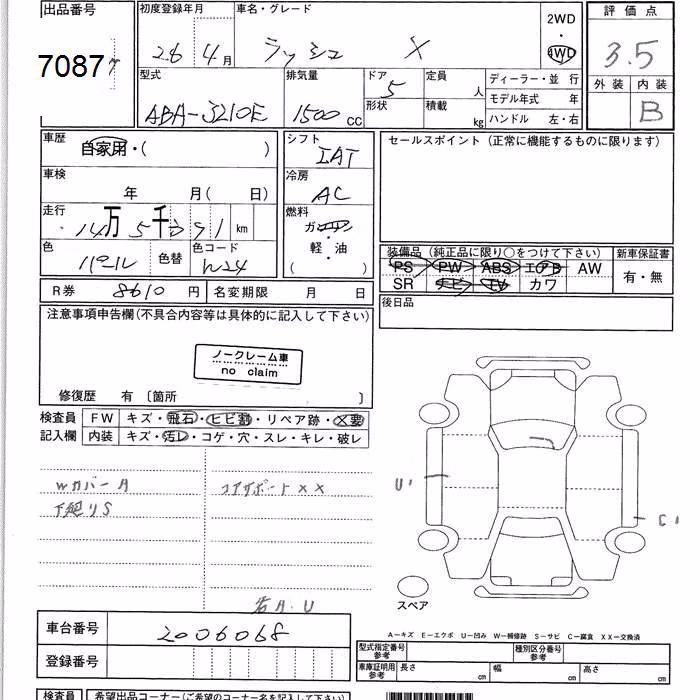 出品番号 初度登録年月 車名・グレード 2WD 評価点
7087 26年4月 ラッシュ X ・ 4WD 3.5
型式 排気量 ドア 定員 ディーラー・並行 外装 内装
ABA-J210E 1500 CC 5 人 モデル年式 年 B
形状 積載 kg ハンドル 左・右
車歴 自家用・( ) シフト IAT セールスポイント(正常に機能するものに限ります)
車検 年 月( 日) 冷房 AC
走行 14万5千 91 km 燃料 ガソリン
色 パール 色替 色コード W24 軽・油
( )
装備品(純正品に限り○をつけて下さい) 新車保証書
PS PW ABS エアB AW 有・無
SR ナビ TV カワ
R券 8610 円 名変期限 月 日 後日品
注意事項申告欄(不具合内容等は具体的に記入して下さい)
ノークレーム車
no claim
修復歴 有 〔箇所 〕
検査員 FW キズ・飛石・ヒビ割・リペア跡・X要
記入欄 内装 キズ・汚レ・コゲ・穴・スレ・キレ・破レ
WカバーA コアサポートXX
下廻りS
U' C'
スペア
A—キズ E—エクボ U—凹み W—補修跡 S—サビ C—腐食 XX—交換済
車台番号 2006068
登録番号
型式指定番号 参考 種別区分番号 参考
車庫証明用 参考 長さ cm 幅 cm 高さ cm
検査員 希望出品コーナー(ご希望のコーナー名を記入して下さい)